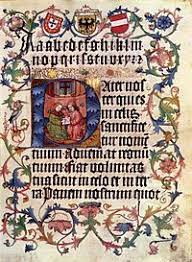 Aabcdefghiklm
nopqr
Pater nos
ter qui es
in celis
sanctifice
tur
tuum adueniat
tuum fiat voluntas
sicut in celo et in terra
Panem nostrum quot